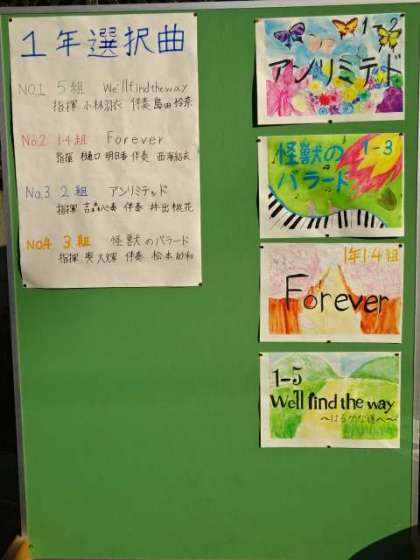 1年選択曲
NO.1 5組 We'll find the way
指揮 小林 羽衣 伴奏 島田 怜奈
No.2 1・4組 Forever
指揮 樋口 明日香 伴奏 西海 結衣
No.3 2組 アンリミテッド
指揮 吉森 心奏 伴奏 井出 桃花
No.4 3組 怪獣のバラード
指揮 大輝 伴奏 松本 紗和
1-2
アンリミテッド
怪獣の 1-3
バラード
1年1・4組
Forever
1-5
We'll find the way
～はるかな道へ～